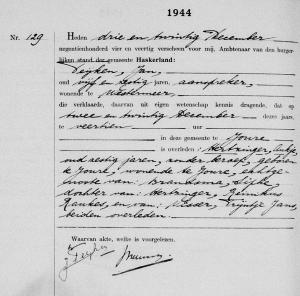 1944
Nr. 129
Heden drie en twintig December
negentienhonderd vier en veertig verscheen voor mij, Ambtenaar van den burger-
lijken stand der gemeente Haskerland:
Deijken, Jan,
oud vijf en zestig jaren, aanspreker,
wonende te Westermeer,
die verklaarde, daarvan uit eigen wetenschap kennis dragende, dat op
twee en twintig December dezes jaars,
te veertien uur
in deze gemeente te Joure
is overleden: Hertzinger, Aukje,
oud zestig jaren, zonder beroep, geboren
te Joure, wonende te Joure, echtge-
noote van: Brandsma, Sipke,
dochter van: Hertzinger,
Raukes, en van: Visser, Trijntje Jans,
beiden overleden.
Waarvan akte, welke is voorgelezen.
J. Deijken